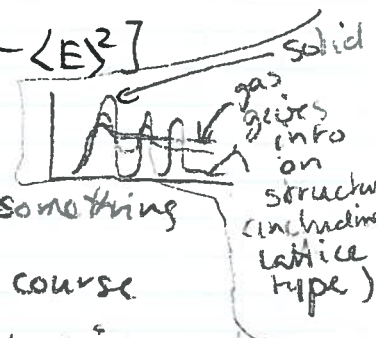 - ⟨E⟩²]
solid
gas
gives
info
on
structu
(includin
lattice
type)
something
course